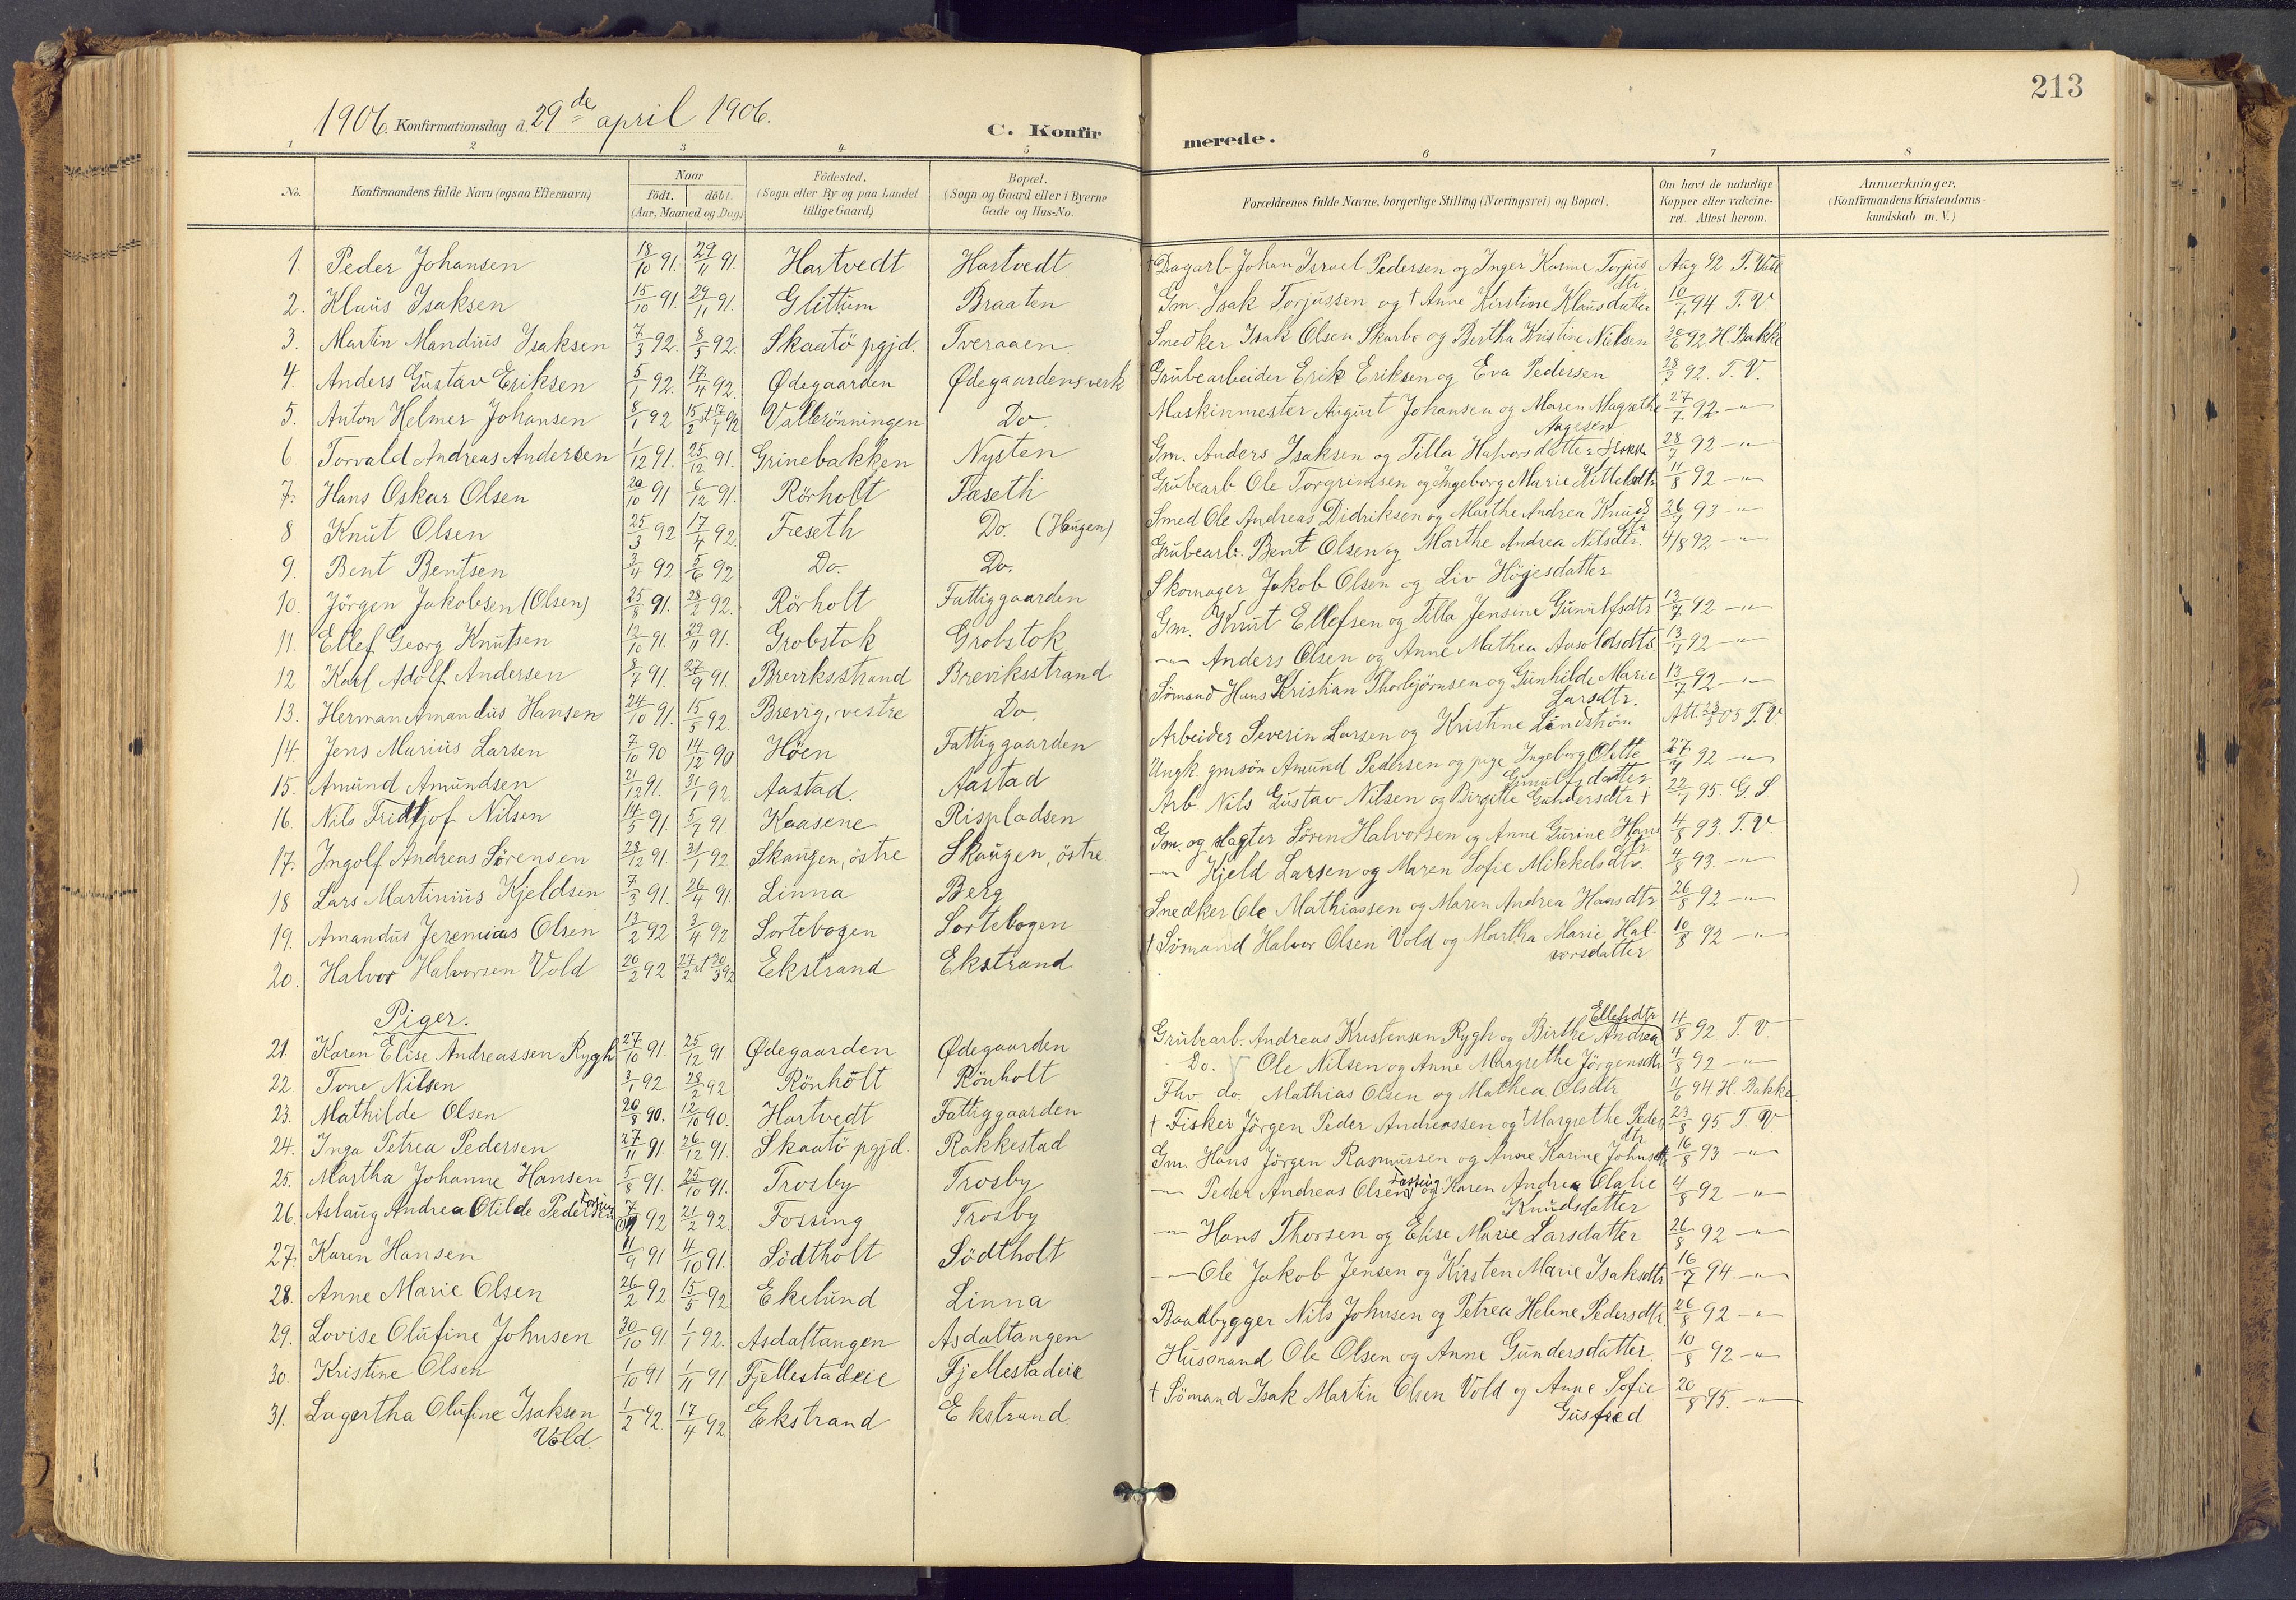 213
1906. Konfirmationsdag d. 29de april 1906. C. Konfirmerede.
1 2 3 4 5 6 7 8
No. Konfirmandens fulde Navn (ogsaa Efternavn) Naar födt. döbt. (Aar, Maaned og Dag) Födested. (Sogn eller By og paa Landet tillige Gaard) Bopæl. (Sogn og Gaard eller i Byerne Gade og Hus-No. Forældrenes fulde Navne, borgerlige Stilling (Næringsvei) og Bopæl. Om havt de naturlige Kopper eller vakcineret. Attest herom. Anmærkninger. (Konfirmandens Kristendomskundskab m. V.)
1. Peder Johansen 18/10 91. 29/11 91. Hartvedt Hartvedt †Dagarb. Johan Israel Pedersen og Inger Karine Torjusdtr. Aug 92 T. Vold
2. Klaus Isaksen 15/10 91. 29/11 91. Glittum Braaten Gm. Isak Torjussen og †Anne Kirstine Klausdatter 10/7 94 T. V.
3. Martin Mandius Isaksen 7/3 92. 8/5 92. Skaatö pgjd. Tveraaen Snedker Isak Olsen Skarbo og Bertha Kristine Nilsen 30/6 92. H. Bakke
4. Anders Gustav Eriksen 5/1 92. 17/4 92. Ødegaarden Ødegaardens verk Grubearbeider Erik Eriksen og Eva Pedersen 28/7 92. T. V.
5. Anton Helmer Johansen 8/1 92 15/2 st 17/4 92 Valbrönningen Do. Maskinmester August Johansen og Maren Magrethe Aagesen 27/7 92 -"-
6 Torvald Andreas Andersen 1/12 91. 25/12 91. Grinebakken Nysten Gm. Anders Isaksen og Tilla Halvorsdatter 28/7 92 -"-
7. Hans Oskar Olsen 20/10 91 6/12 91. Rörholt Faseth Grubearb. Ole Torgrimsen og Ingeborg Marie Kittelsdtr. 11/8 92 -"-
8. Knut Olsen 25/3 92 17/4 92. Fæseth Do. (Haugen) Smed Ole Andreas Didriksen og Marthe Andrea Knudsdtr 26/7 93 -"-
9. Bent Bentsen 3/4 92 5/6 92 Do. Do. Grubearb. Bent Olsen og Marthe Andrea Nilsdtr. 4/8 92 -"-
10. Jörgen Jakobsen (Olsen) 25/8 91. 28/2 92. Rörholt Fattiggaarden Skomager Jakob Olsen og Liv Höijesdatter
11. Ellef Georg Knutsen 12/10 91. 29/11 91. Grobstok Grobstok Gm. Knut Ellefsen og Tilla Jensine Gunulfsdtr 13/7 92 -"-
12 Karl Adolf Andersen 8/7 91. 27/9 91. Breviksstrand Breviksstrand -"- Anders Olsen og Anne Mathea Aasoldsdtr. 13/7 92 -"-
13. Herman Amandus Hansen 24/10 91. 15/5 92. Brevig, vestre Do. Sömand Hans Kristian Thorbjörnsen og Gunhilde Marie Larsdtr. 13/7 92 -"-
14. Jens Marius Larsen 7/10 90 14/12 90 Höen Fattiggaarden Arbeider Severin Larsen og Kristine Lindström Att. 23/3 05 T. V.
15. Amund Amundsen 21/12 91. 31/1 92. Aastad. Aastad Ungk. gmsön Amund Pedersen og pige Ingeborg Olette Gunulfsdatter 27/7 92 -"-
16. Nils Fridtjof Nilsen 14/5 91. 5/7 91. Kaasene Rispladsen Arb. Nils Gustav Nilsen og Birgitte Gundersdtr † 22/7 95. G. S
17. Ingolf Andreas Sörensen 28/12 91. 31/1 92 Skaugen, östre Skaugen, östre. Gm. og slagter Sören Halvorsen og Anne Gurine Hansdtr. 4/8 93. T. V.
18 Lars Martinius Kjeldsen 7/3 91. 26/4 91. Linna Berg -"- Kjeld Larsen og Maren Sofie Mikkelsdtr. 4/8 93. -"-
19. Amandus Jeremias Olsen 13/2 92 3/4 92 Sortebogen Sortebogen Snedker Ole Mathiassen og Maren Andrea Hansdtr 26/8 92 -"-
20. Halvor Halvorsen Vold 20/2 92 27/2 st 20/3 92 Eekstrand Ekstrand † Sömand Halvor Olsen Vold og Martha Marie Halvorsdatter 10/8 92 -"-
Piger.
21. Karen Elise Andreassen Rygh 27/10 91. 25/12 91. Ødegaarden Ødegaarden Grubearb. Andreas Kristensen Rygh og Birthe Andrea Ellefsdtr 4/8 92 T. V.
22. Tone Nilsen 3/1 92 28/2 92 Rönholt Rönholt Do. Ole Nilsen og Anne Margrethe Jörgensdtr 4/8 92 -"-
23. Mathilde Olsen 20/8 90. 12/10 90. Hartvedt Fattiggaarden Fhv. do. Mathias Olsen og Mathea Olsdtr 11/6 94 H. Bakke
24. Inga Petrea Pedersen 27/11 91. 26/12 91. Skaatö pgjd. Rakkestad † Fisker Jörgen Peder Andreassen og †Margrethe Pedersdtr 23/8 95 T. V.
25. Martha Johanne Hansen 5/8 91. 25/10 91. Trosby Trosby Gm. Hans Jörgen Rasmussen og Anne Karine Johnsdtr 16/8 93 -"-
26. Aslaug Andrea Otilde Pedersen Fossing 7/1 92 21/2 92. Fossing Trosby -"- Peder Andreas Olsen Fossing og Karen Andrea Olalie Knudsdatter 4/8 92 -"-
27. Karen Hansen 11/9 91 11/10 91. Södtholt Södtholt -"- Hans Thorsen og Elise Marie Larsdatter 26/8 92 -"-
28. Anne Marie Olsen 26/2 92 15/5 92 Ekelund Linna -"- Ole Jakob Jensen og Kirsten Marie Isaksdtr 16/7 94. -"-
29. Lovise Olufine Johnsen 30/10 91. 1/1 92. Asdaltangen Asdaltangen Baadbygger Nils Johnsen og Petrea Helene Pedersdtr. 26/8 92 -"-
30. Kristine Olsen 1/10 91 1/11 91. Fjellestadeie Fjellestadeie Husmand Ole Olsen og Anne Gundersdatter 10/8 92 -"-
31. Lagertha Olufine Isaksen Vold. 1/2 92. 17/4 92 Ekstrand Ekstrand. † Sömand Isak Martin Olsen Vold og Anne Sofie Gusfred 20/8 95. -"-